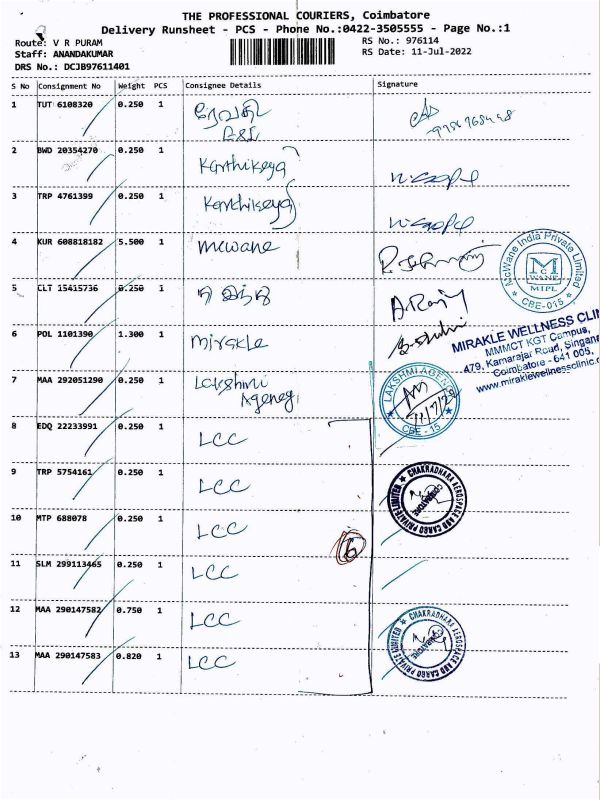 THE PROFESSIONAL COURIERS, Coimbatore
Delivery Runsheet - PCS - Phone No.:0422-3505555 - Page No.:1
Route: V R PURAM
RS No.: 976114
Staff: ANANDAKUMAR
RS Date: 11-Jul-2022
DRS No.: DCJB97611401
S No Consignment No Weight PCS Consignee Details Signature
1 TUT 6108320 0.250 1 ரேவதி
2 BWD 20354270 0.250 1 Karthikeya
3 TRP 4761399 0.250 1 Karthikeya
4 KUR 608818182 5.500 1 mcwane
McWane India Private Limited
MCWANE
MIPL
CBE-015
5 CLT 15415736 0.250 1
6 POL 1101390 1.300 1 mirakle
MIRAKLE WELLNESS CLI
MMMCT KGT Campus,
479, Kamarajar Road, Singana
Coimbatore - 641 005.
www.miraklewellnessclinic.c
7 MAA 292051290 0.250 1 Lakshmi
Agency
LAKSHMI AGENC
11/7/22
CBE - 15
8 EDQ 22233991 0.250 1 LCC
9 TRP 5754161 0.250 1 LCC
CHAKRADHARA AEROSPACE AND CARGO PRIVATE LIMITED
COIMBATORE
10 MTP 688078 0.250 1 LCC
6
11 SLM 299113465 0.250 1 LCC
12 MAA 290147582 0.750 1 LCC
CHAKRADHARA AEROSPACE AND CARGO PRIVATE LIMITED
COIMBATORE
13 MAA 290147583 0.820 1 LCC